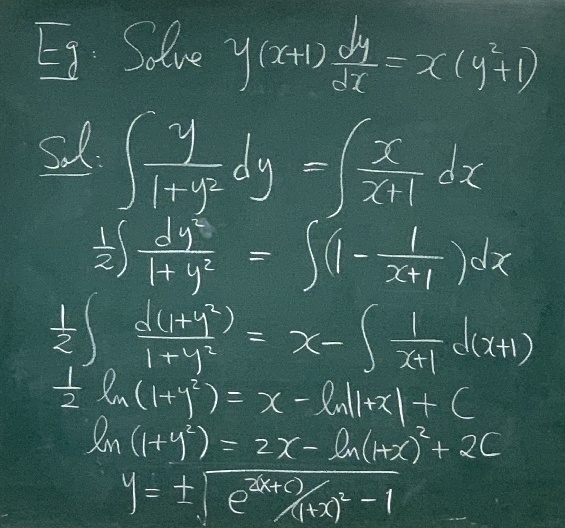 Eg: Solve y(x+1) dy/dx = x(y²+1)
Sol: ∫ y/(1+y²) dy = ∫ x/(x+1) dx
½∫ dy²/(1+y²) = ∫(1 - 1/(x+1))dx
½∫ d(1+y²)/(1+y²) = x - ∫ 1/(x+1) d(x+1)
½ ln(1+y²) = x - ln|1+x| + C
ln(1+y²) = 2x - ln(1+x)² + 2C
y = ±√(e^{2(x+C)}/(1+x)² - 1)